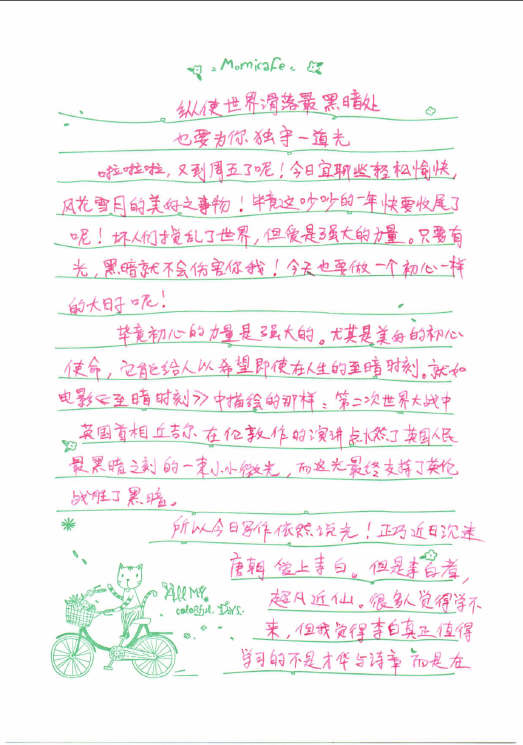 Momicafe
纵使世界滑落最黑暗处
也要为你独守一道光
啦啦啦，又到周五了呢！今日宜聊些轻松愉快，
风花雪月的美好之事物！毕竟这吵吵的一年快要收尾了
呢！坏人们搅乱了世界，但爱是强大的力量。只要有
光，黑暗就不会伤害你我！今天也要做一个初心一样
的大日子呢！
毕竟初心的力量是强大的。尤其是美好的初心
使命，它能给人以希望即使在人生的至暗时刻。就和
电影《至暗时刻》中描绘的那样：第二次世界大战中
英国首相丘吉尔在伦敦作的演讲点燃了英国人民
最黑暗之刻的一束小小微光，而这光最终支撑了英伦
战胜了黑暗。
所以今日写作依然说光！正巧近日沉迷
唐朝 爱上李白。但是李白者，
超凡近仙。很多人觉得学不
来，但我觉得李白真正值得
学习的不是才华与诗章 而是在
All My
colorful Days.